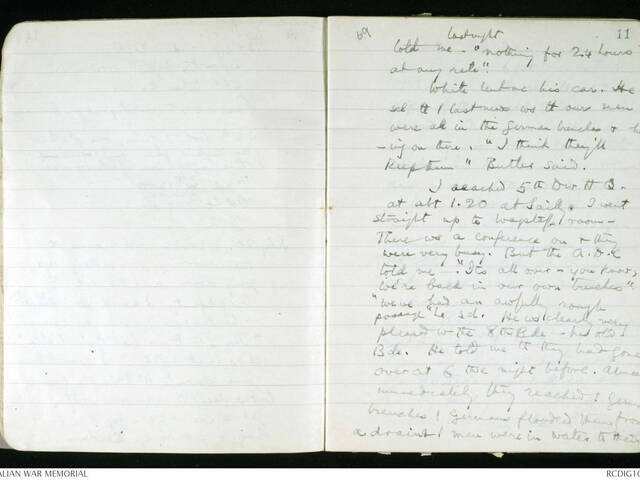 69
11
last night
told me - "nothing for 24 hours
at any rate".
White lent me his car. He
sd tt / last news ws tt our men
were all in the German trenches &
-ing on there. "I think they'll
keep them" Butler said.
I reached 5th Div H.Q.
at abt 1.20 at Sailly. I went
straight up to Wagstaff's room -
There ws a conference on & they
were very busy. But the A.D.C
told me - "Its all over - you know,
we're back in our own trenches"
"we've had an awfully rough
passage" he sd. He ws clearly very
pleased w the 8th Bde - his old
Bde. He told me tt they had gone
over at 6 the night before. Almost
immediately they reached / German
trenches / Germans flooded them from
a drain & / men were in water to their
ALIAN WAR MEMORIAL
RCDIG10